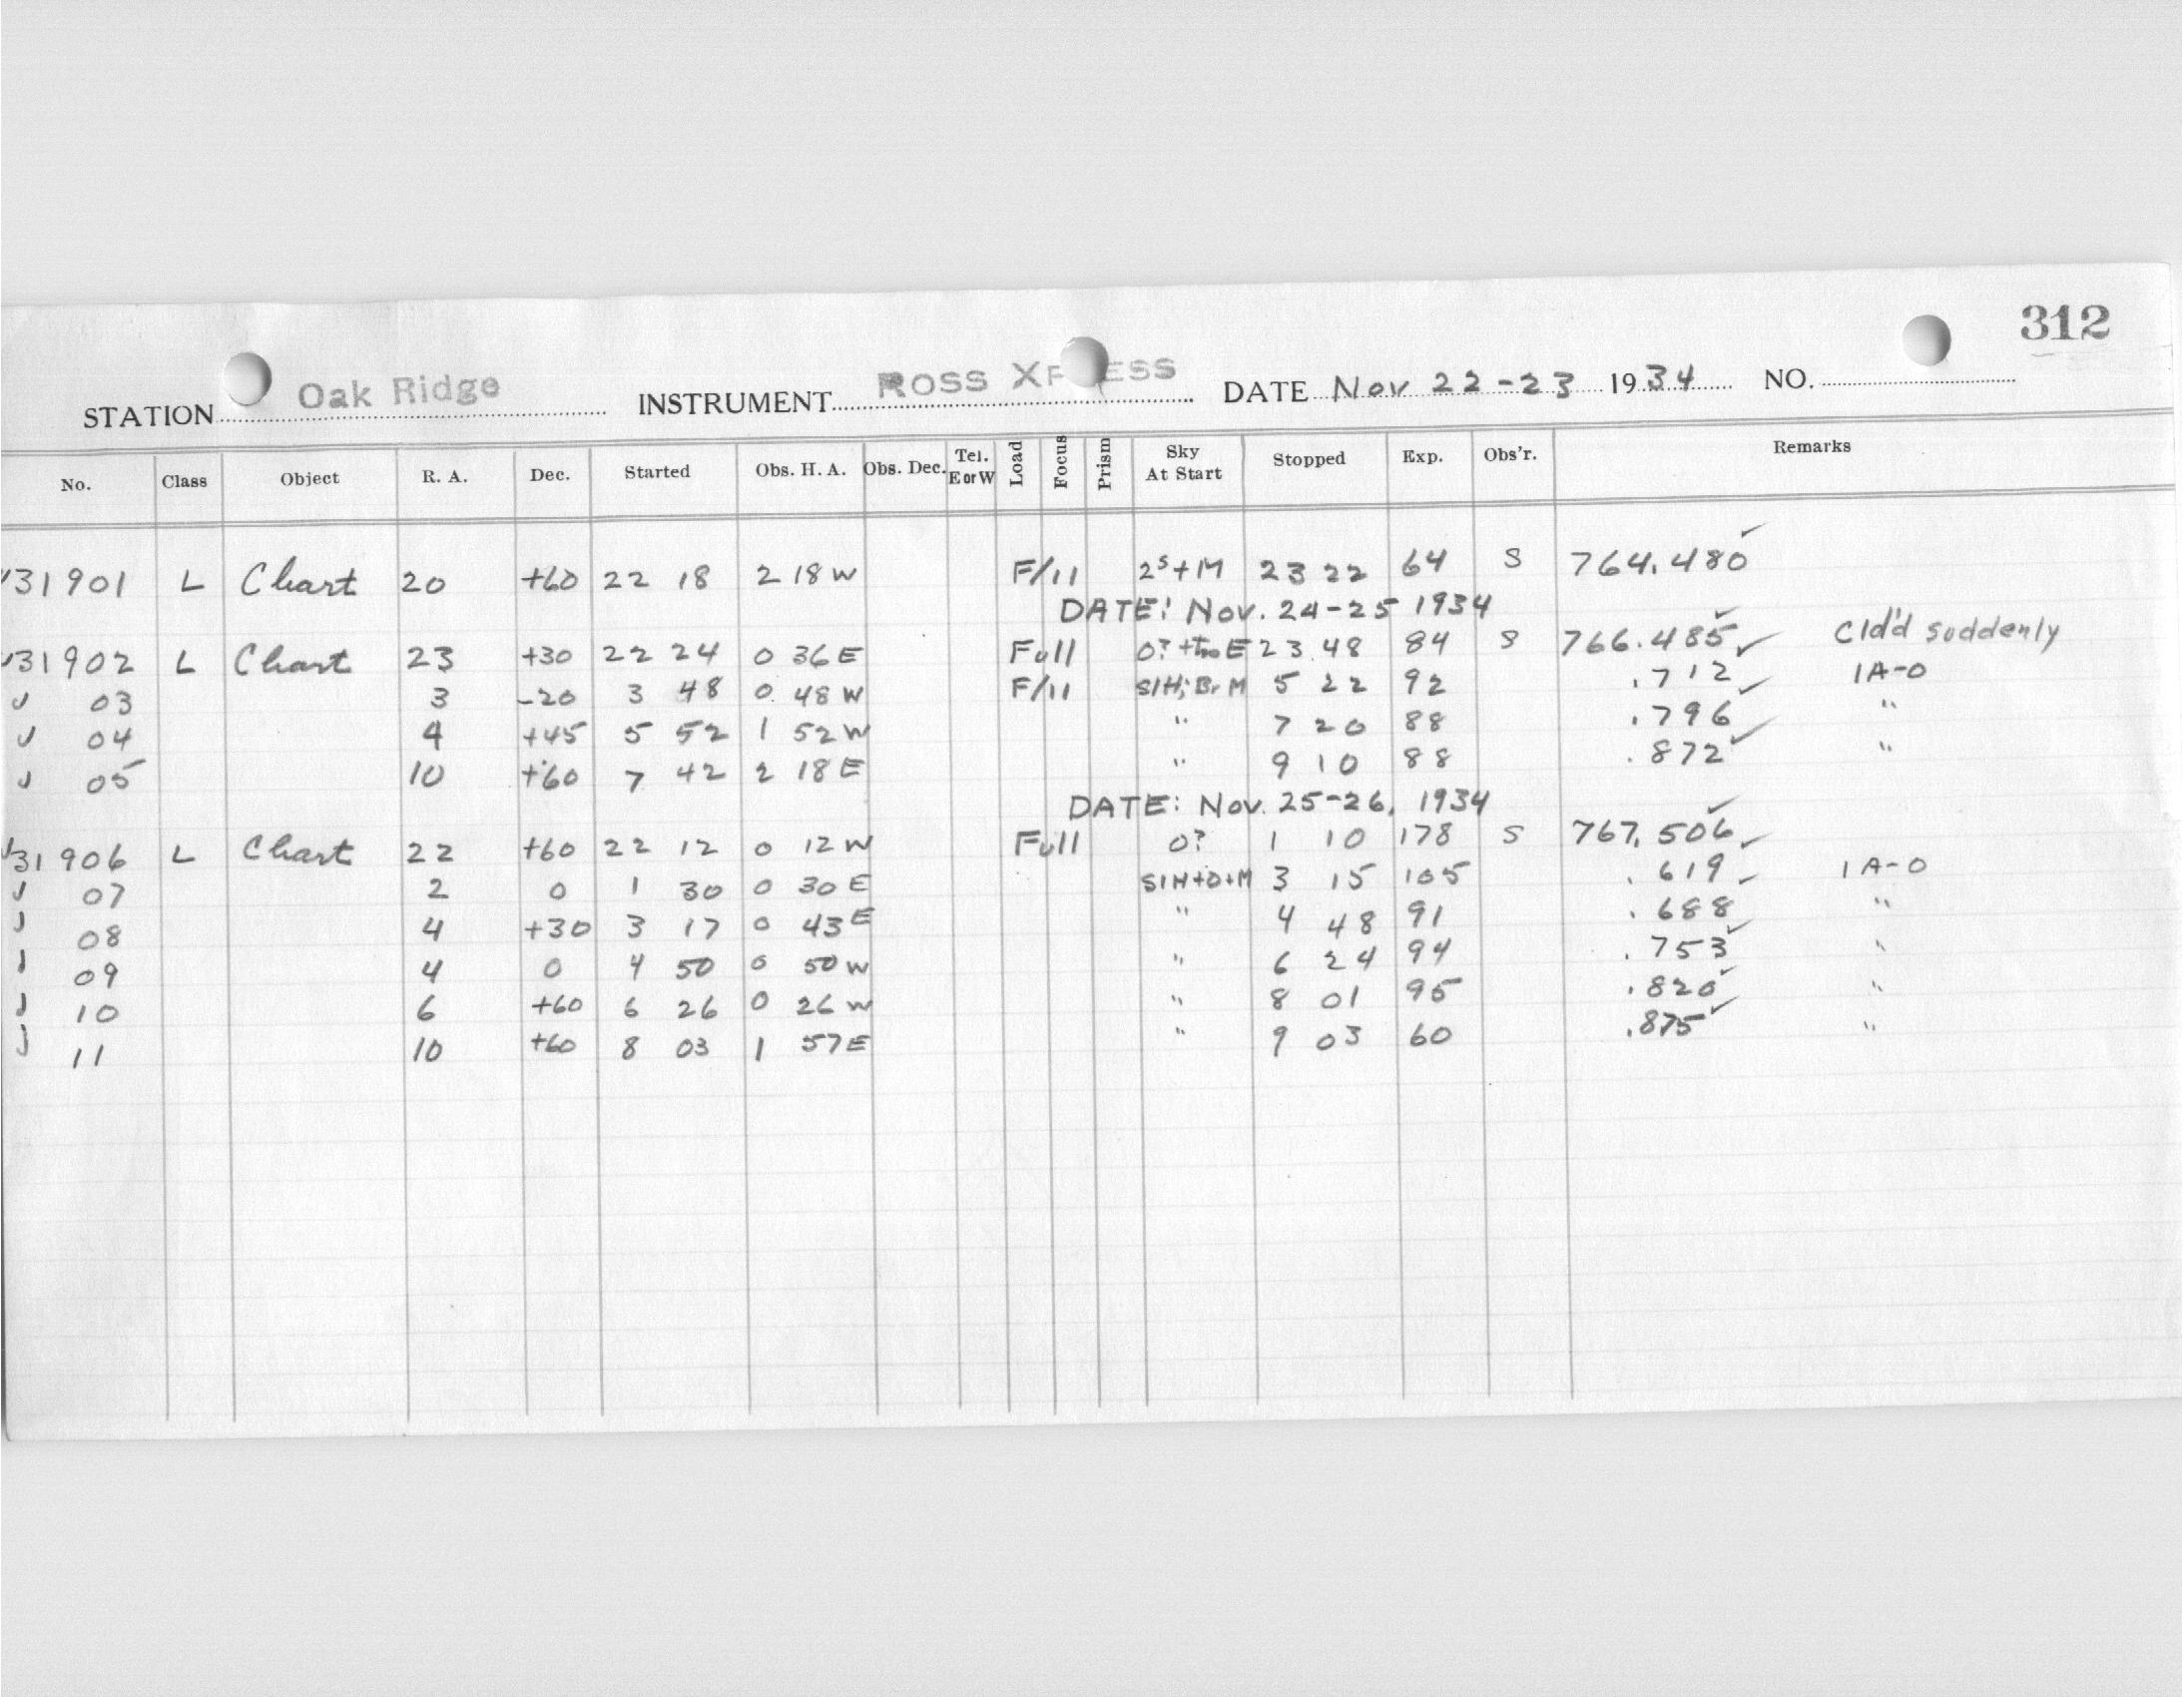 312
STATION Oak Ridge INSTRUMENT ROSS XPRESS DATE Nov 22-23 1934 NO.
No. Class Object R. A. Dec. Started Obs. H. A. Obs. Dec. Tel. E or W Load Focus Prism Sky At Start Stopped Exp. Obs'r. Remarks
31901 L Chart 20 +60 22 18 2 18 W F/11 2S+M 23 22 64 S 764.480 ✓
DATE: Nov. 24-25 1934
31902 L Chart 23 +30 22 24 0 36 E Full 0? + E 23 48 84 S 766.485 ✓ Cld'd suddenly
✓ 03 3 -20 3 48 0 48 W F/11 SlH; Br M 5 22 92 .712 ✓ 1A-0
✓ 04 4 +45 5 52 1 52 W " 7 20 88 .796 ✓ "
✓ 05 10 +60 7 42 2 18 E " 9 10 88 .872 ✓ "
DATE: Nov. 25-26, 1934
31906 L Chart 22 +60 22 12 0 12 W Full 0? 1 10 178 S 767.506 ✓
✓ 07 2 0 1 30 0 30 E SlH+D+M 3 15 105 .619 ✓ 1A-0
✓ 08 4 +30 3 17 0 43 E " 4 48 91 .688 ✓ "
✓ 09 4 0 4 50 0 50 W " 6 24 94 .753 ✓ "
✓ 10 6 +60 6 26 0 26 W " 8 01 95 .820 ✓ "
✓ 11 10 +60 8 03 1 57 E " 9 03 60 .875 ✓ "